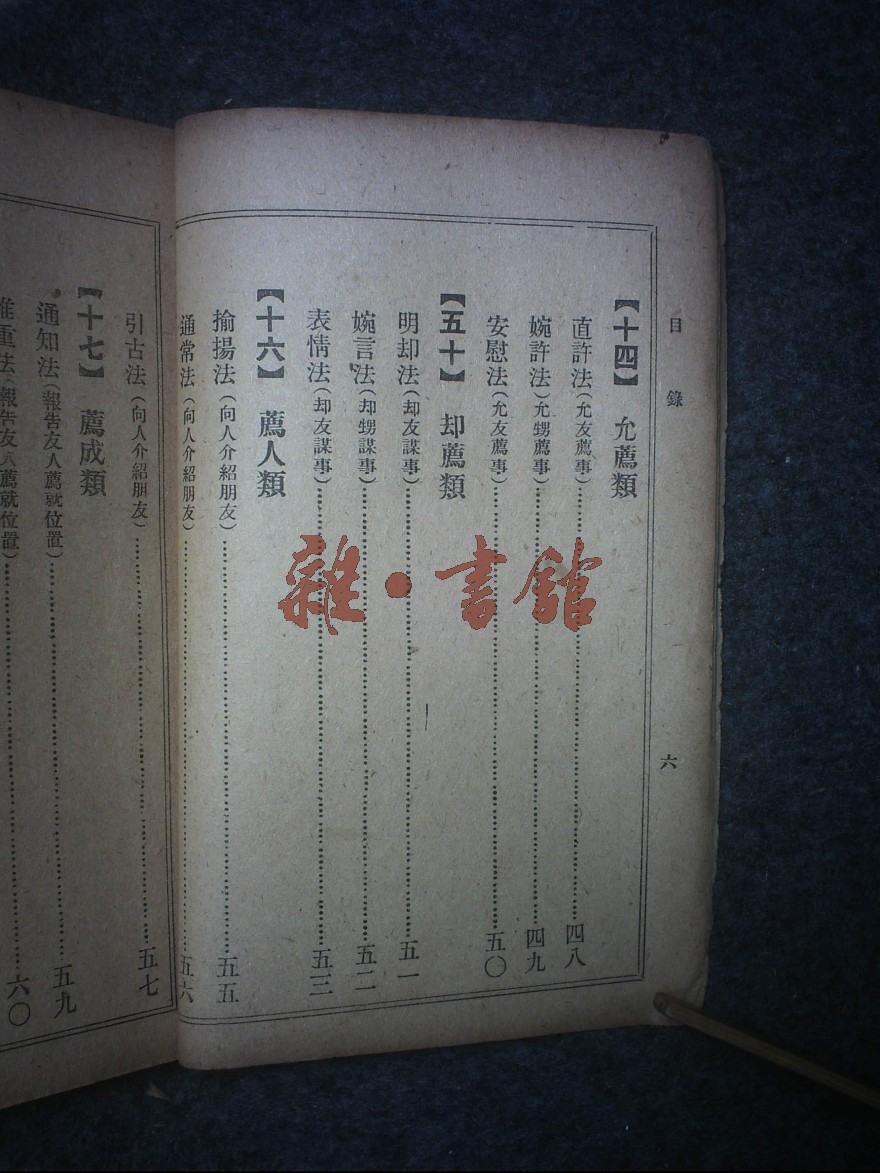 目錄
六
【十四】 允薦類
直許法(允友薦事)…………四八
婉許法(允甥薦事)…………四九
安慰法(允友薦事)…………五〇
【五十】 却薦類
明却法(却友謀事)…………五一
婉言法(却甥謀事)…………五二
表情法(却友謀事)…………五三
【十六】 薦人類
揄揚法(向人介紹朋友)…………五五
通常法(向人介紹朋友)…………五六
引古法(向人介紹朋友)…………五七
【十七】 薦成類
通知法(報告友人薦就位置)…………五九
重法(報告友人薦就位置)…………六〇
雜·書館